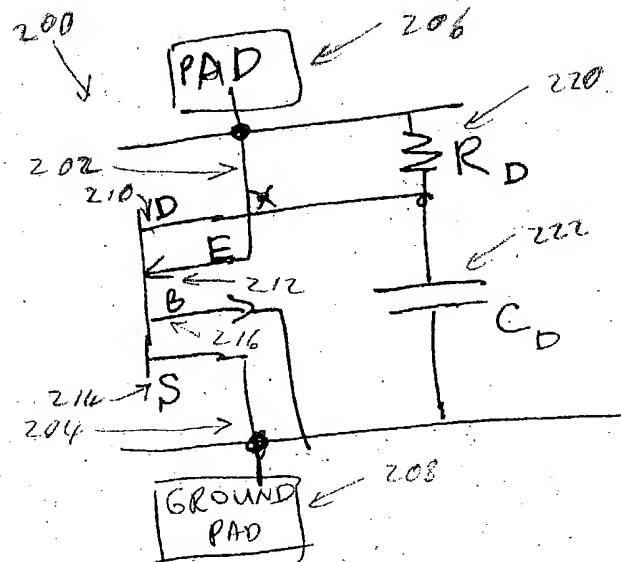 200
PAD
206
220
202
R D
210
D
E
222
212
B
216
C D
214
S
204
208
GROUND
PAD